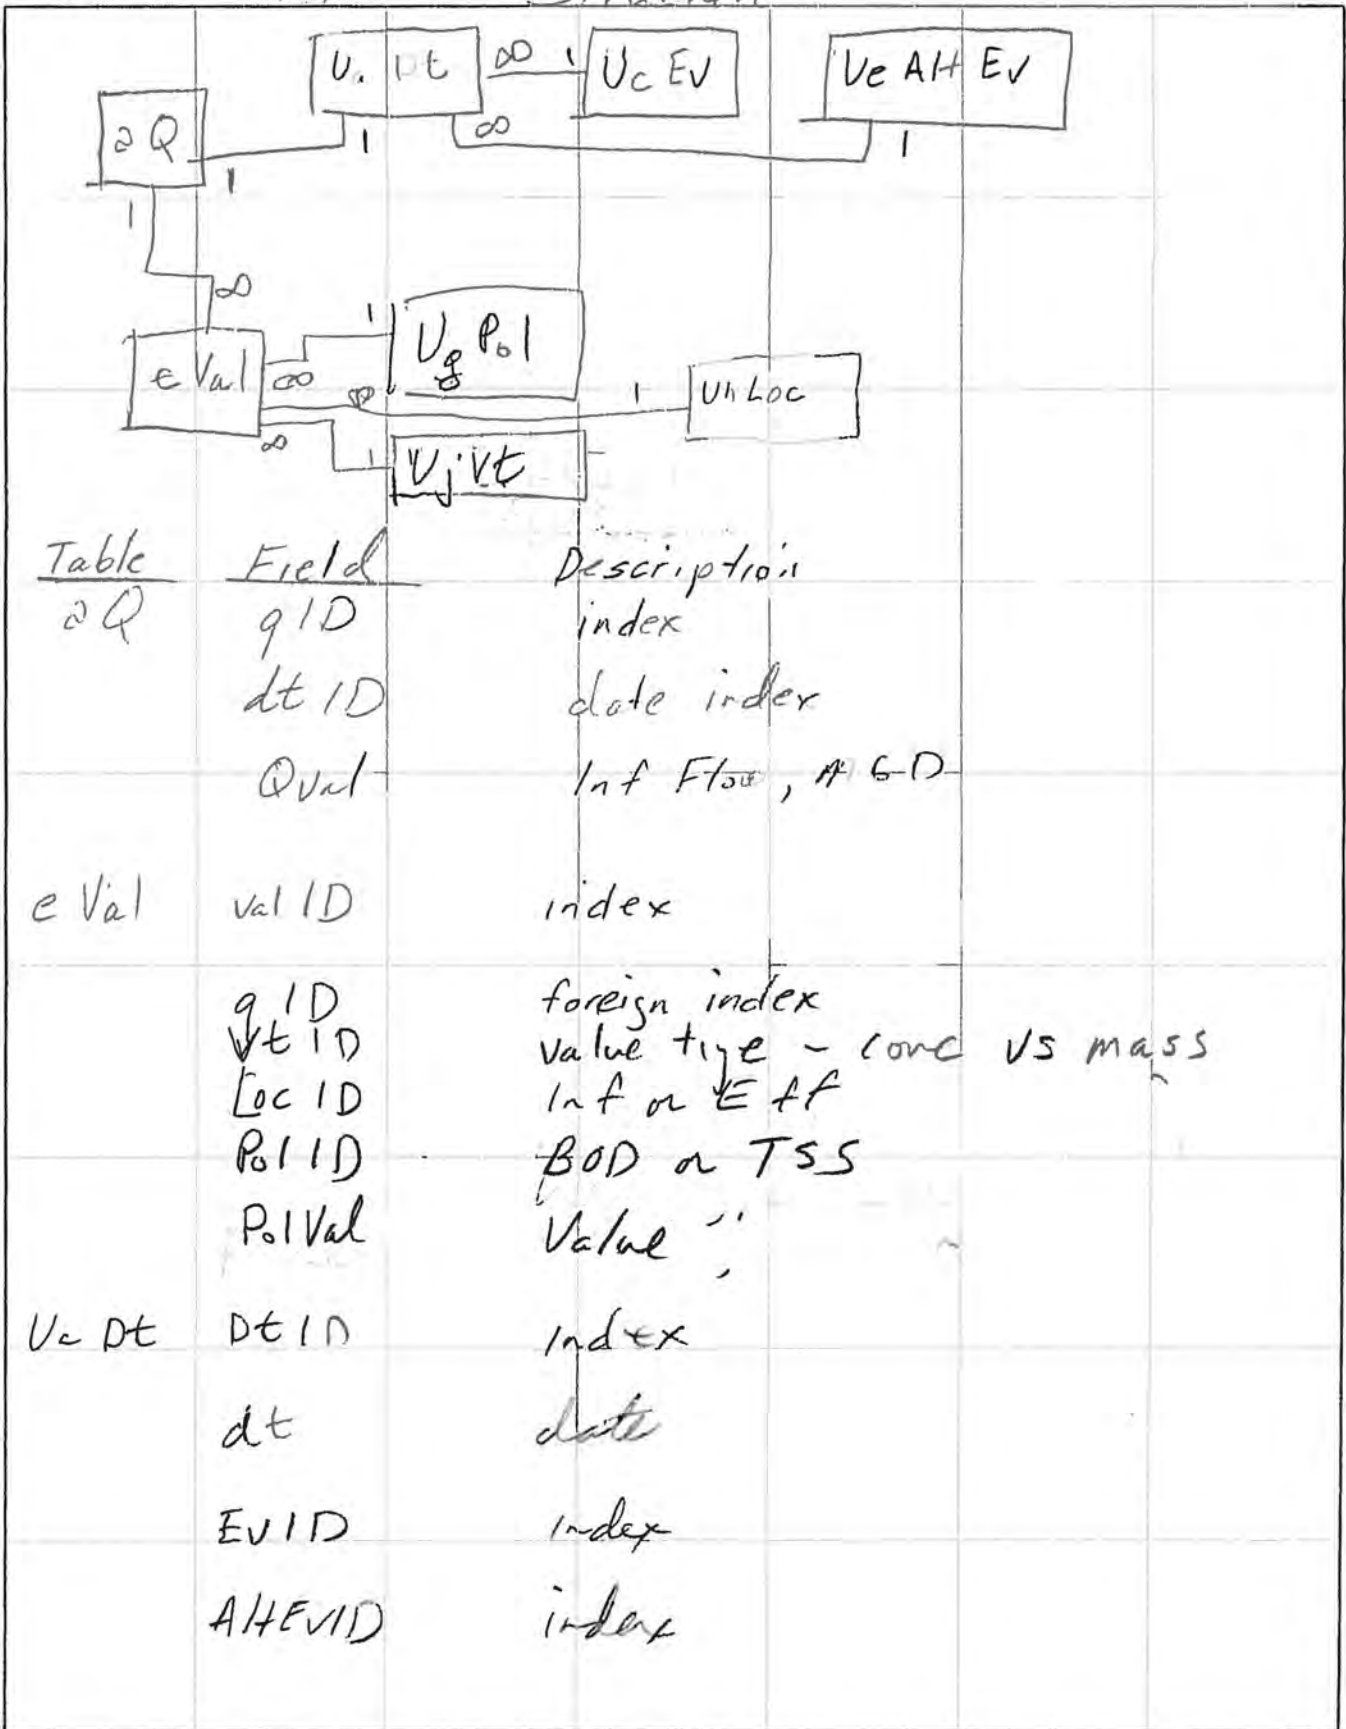 ∞ 1 Uc EV Ve Alt Ev
a Q 1 ∞ 1
1
1
∞
1 Ug Pol
e Val ∞ ∞ 1 Uh Loc
∞ 1 Vj Vt
Table Field Description
a Q qID index
dt ID date index
QVal Inf Flow, MGD
e Val val ID index
qID foreign index
Vt ID value type - conc vs mass
Loc ID Inf or Eff
Pol ID BOD or TSS
Pol Val Value "
Dt Dt ID Index
dt date
EvID Index
AltEvID index